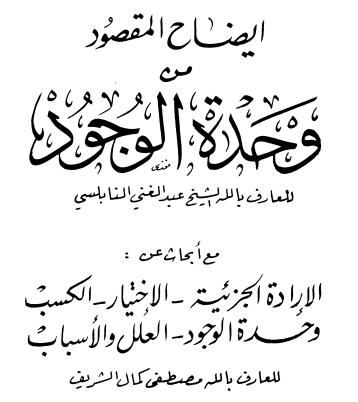 ايضاح المقصُود
من
وَحْدَة الوُجُودْ
للعارف بالله الشيخ عبد الغني النابلسي
مع أبحاث عن :
الإرادة الجزئية - الإختيار - الكسب
وحدة الوجود - العلل والأسباب
للعارف بالله مصطفى كمال الشريف